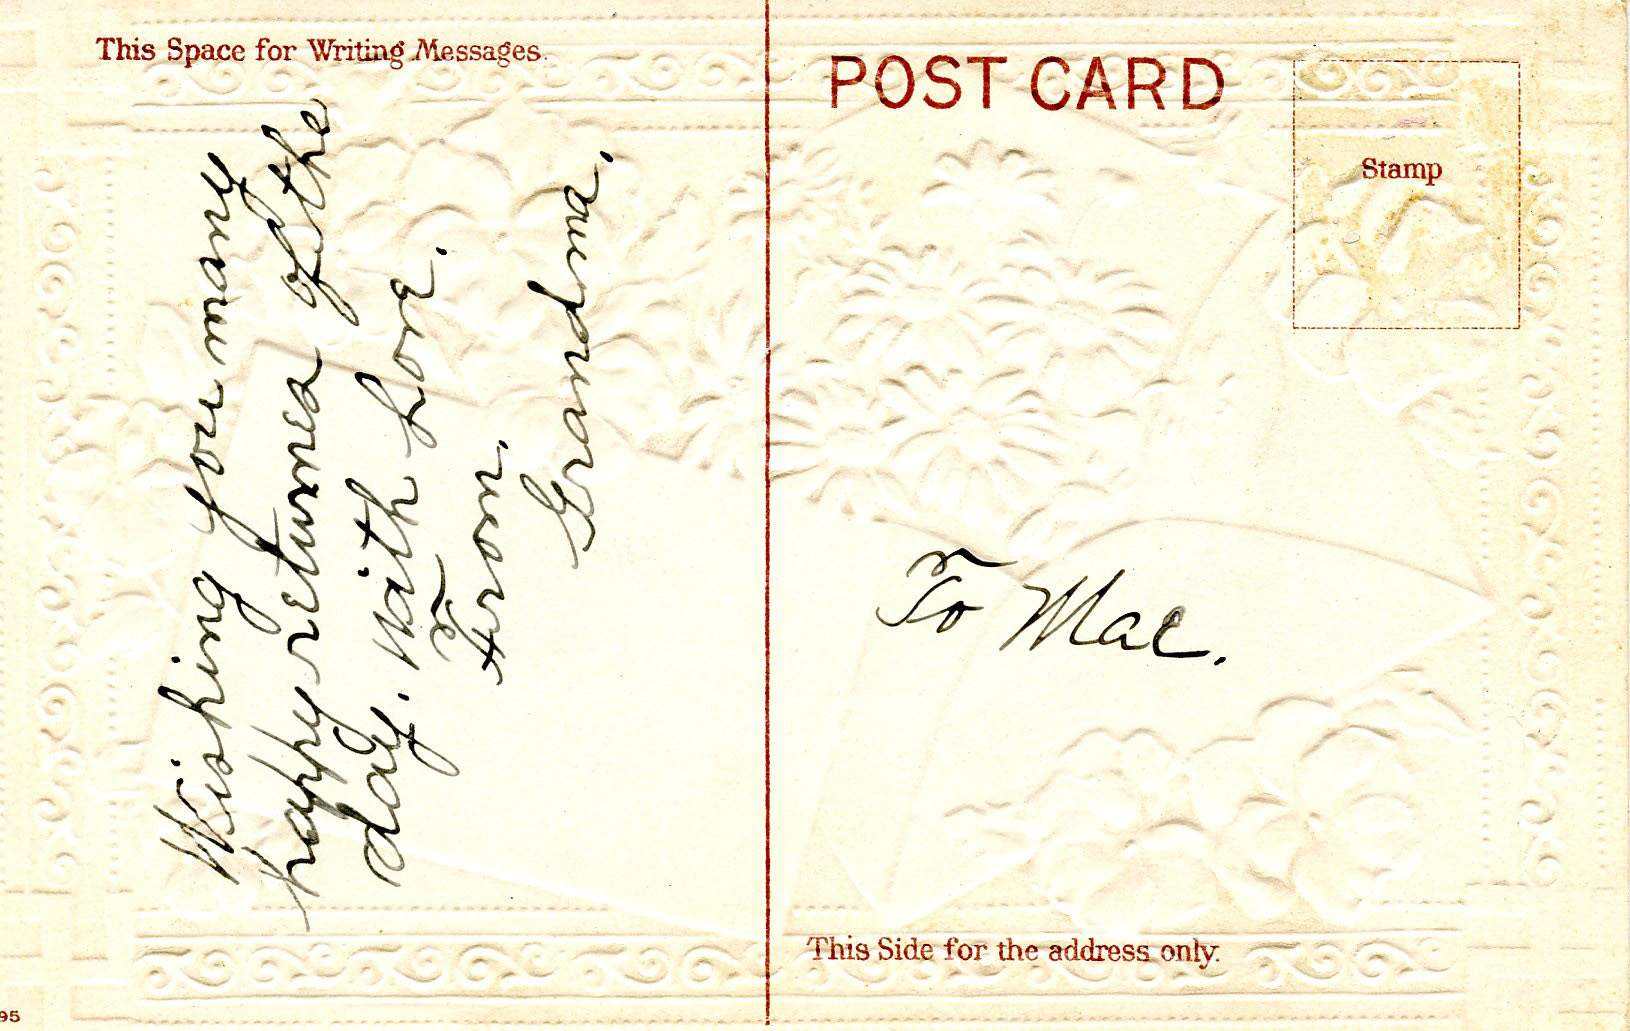 This Space for Writing Messages.
POST CARD
Stamp
Wishing you many
happy returnes of the
day. With Love.
From.
Grandma.
To Mac.
This Side for the address only.
95